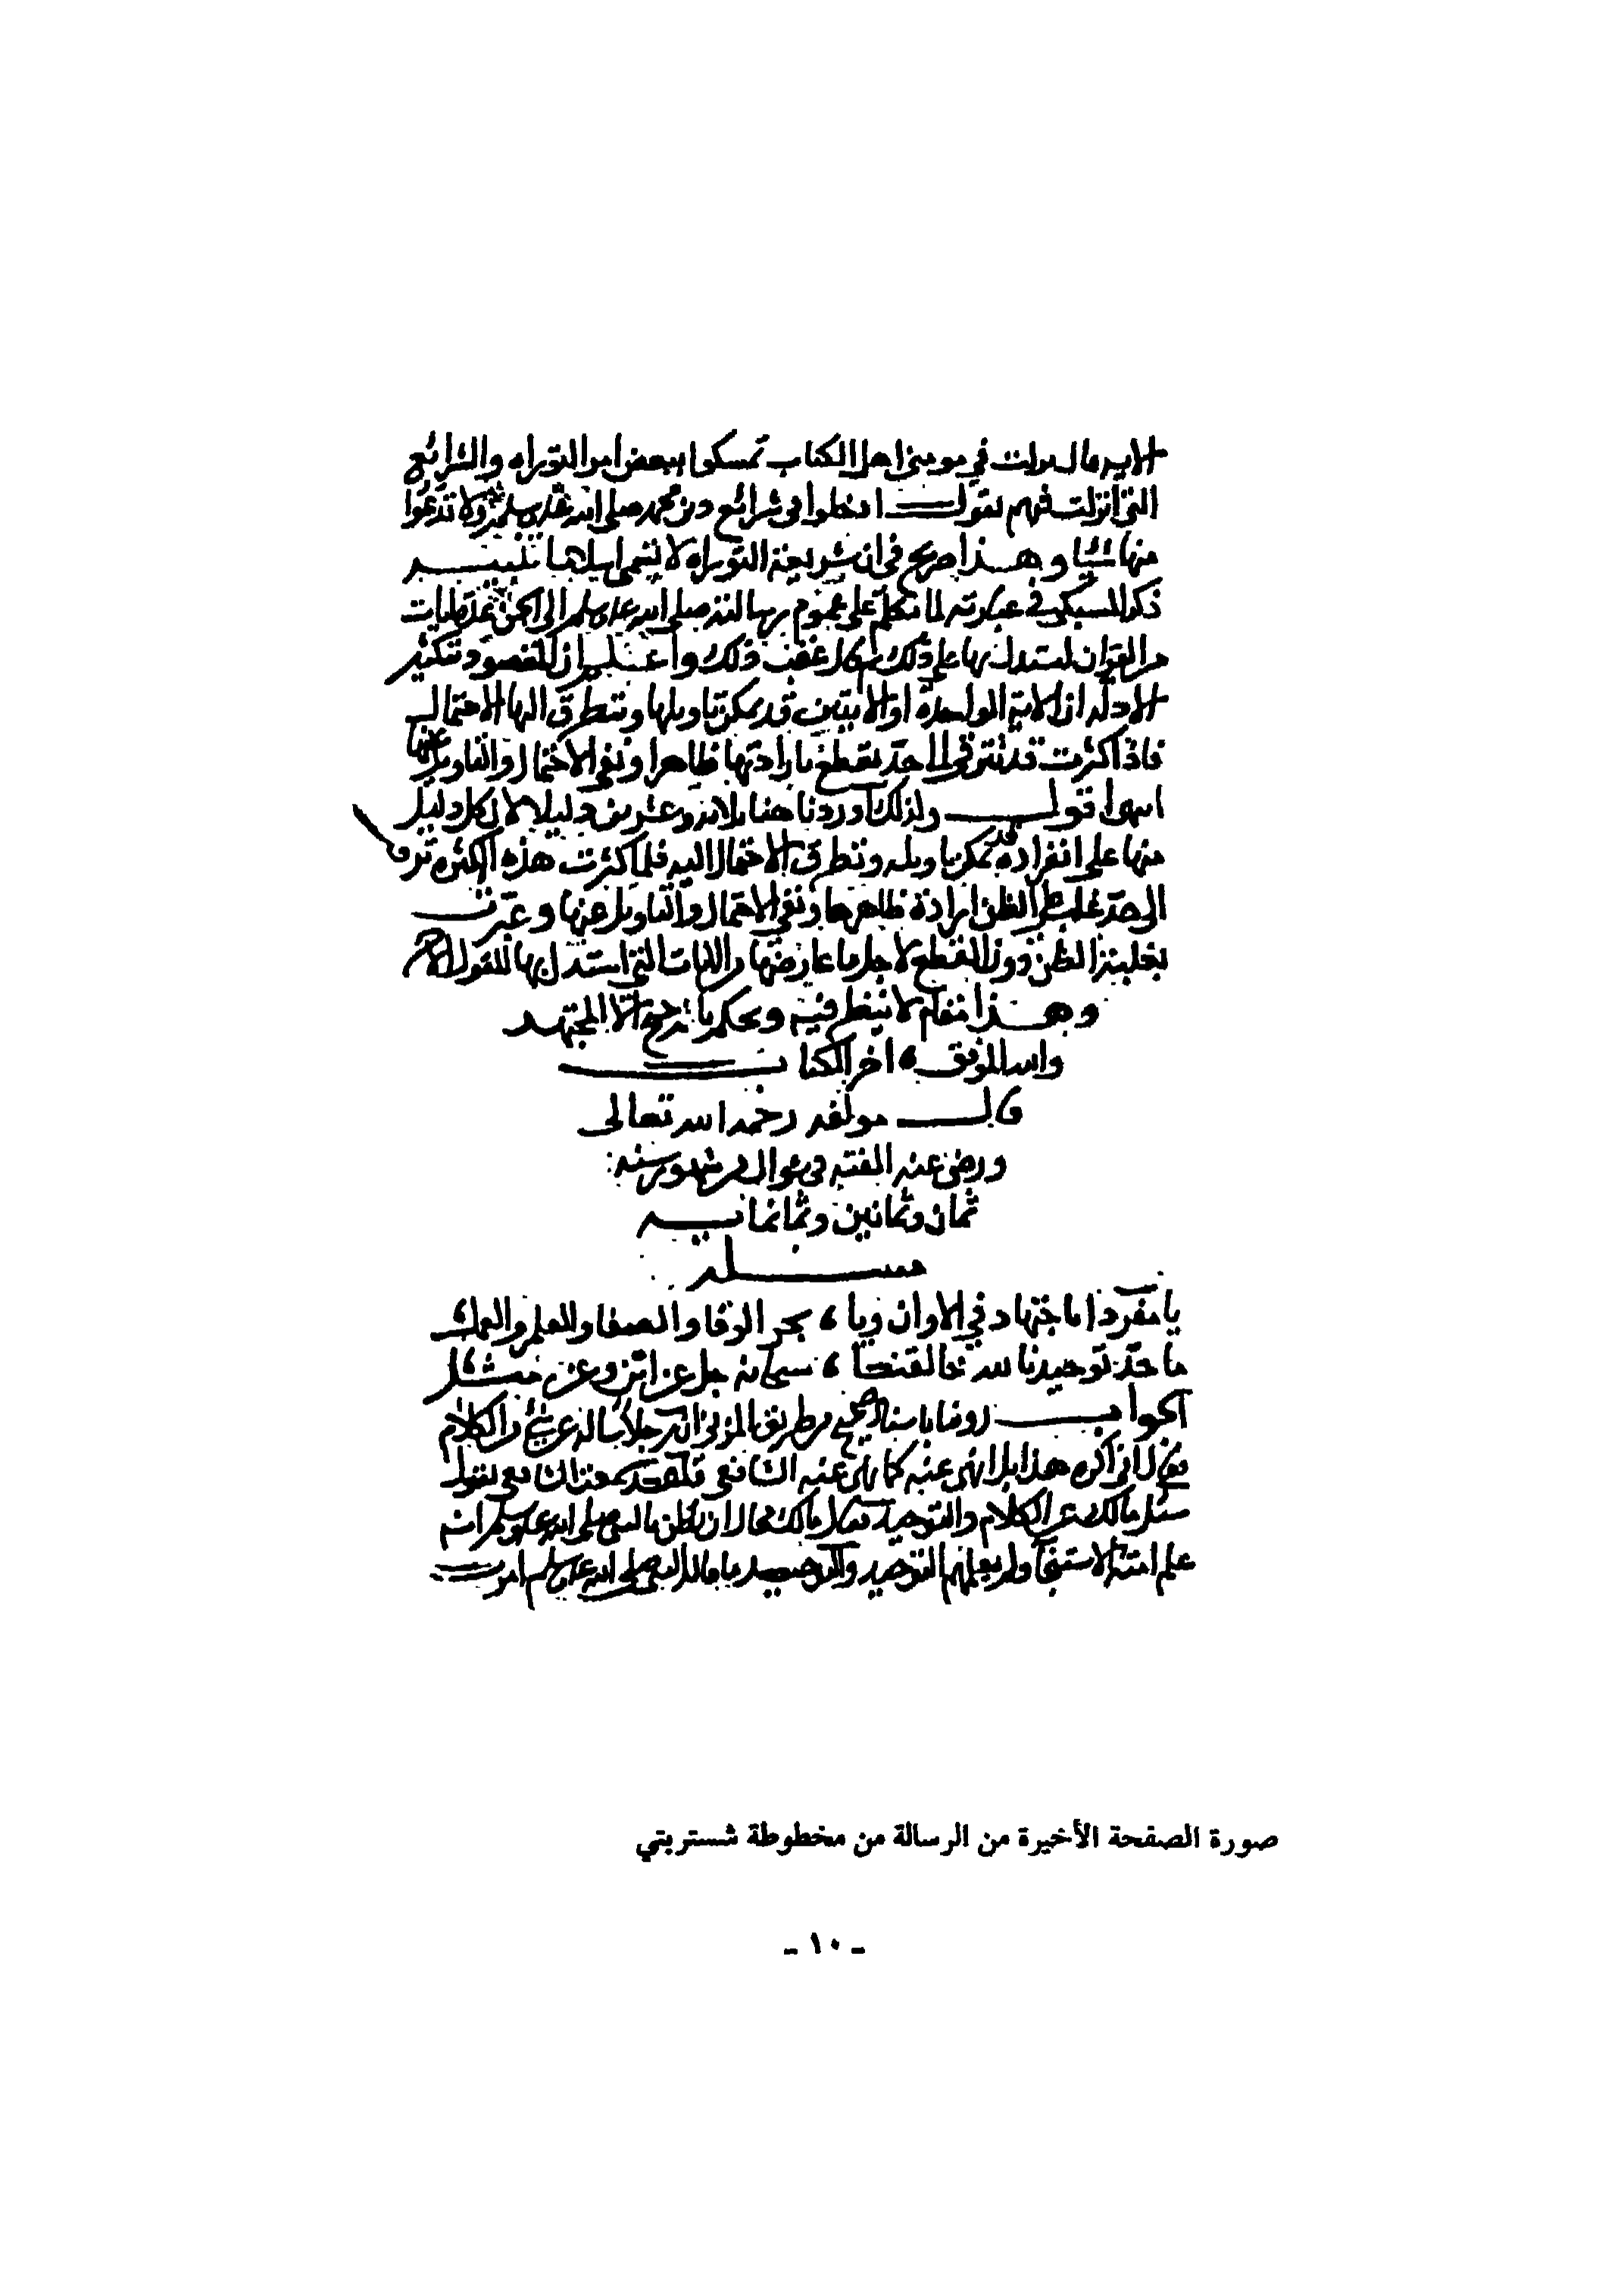 الايه قال نزلت في مومني اهل الكتاب تمسكوا ببعض امر التوراه والشرائع
التي انزلت فيهم يقول ادخلوا في شرائع دين محمد صلى الله عليه وسلم ولا تدعوا
منها شيئا وهذا صريح في ان شريعة التوراه لا تسمى اسلاما تنبيه
ذكر السبكي في عبارته لما تكلم على عموم رسالته صلى الله عليه وسلم الى الجن عدة ايات
من القران استدل بها على ذلك ثم قال عقب ذلك واعلم ان المقصود بتكثير
الادله ان الاية الواحدة او الايتين قد يمكن تاويلها ويتطرق اليها الاحتمال
فاذا كثرت قد تترقى الى حد يقطع بارادتها ظاهرا ونفي الاحتمال والتاويل عنها
انتهى اقول ولذلك اوردنا هنا ثلاثه وعشرين دليلا لان كل دليل
منها على انفراده قد يمكن تاويله ويتطرق الاحتمال اليه فلما كثرت هذه الكثره ترقى
الى حد غلب على الظن ارادة ظاهرها ونفي الاحتمال والتاويل عنها وعبرت
بغلبة الظن دون القطع لاجل ما عارضها من الايات التي استدل بها للقول الاخر
وهذا مقام لا ينظر فيه ويحكم بالترجيح الا المجتهد
والله الموفق ، اخر الكتاب
قال مولفه رحمه الله تعالى
ورضي عنه الفته في شوال من شهور سنه
ثمان وثمانين وثمانمايه
مسئله
يا مفردا باجتهاد في الاوان ويا ، بحر الوفا والصفا والعلم والعمل
ما حد توحيدنا لله خالقنا ، سبحانه جل عن اين وعن مثل
الجواب روينا باسناد صحيح من طريق المزني ان رجلا ساله عن شي من الكلام
فقال اني اكره هذا بل انهى عنه كما نهى عنه الشافعي فلقد سمعت الشافعي يقول
سئل مالك عن الكلام والتوحيد فقال مالك محال ان يظن بالنبي صلى الله عليه وسلم انه
علم امته الاستنجا ولم يعلمهم التوحيد والتوحيد ما قاله النبي صلى الله عليه وسلم امرت
صورة الصفحة الأخيرة من الرسالة من مخطوطة شستربتي
- ١٠ -